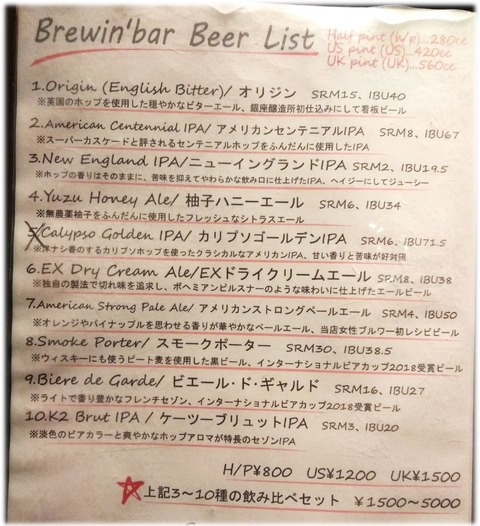 Brewin'bar Beer List
Half pint (h/p)...280cc
US pint (US)...420cc
UK pint (UK)...560cc
1.Origin (English Bitter)/ オリジン SRM15、IBU40
※英国のホップを使用した穏やかなビターエール、銀座醸造所初仕込みにして看板ビール
2.American Centennial IPA/ アメリカンセンテニアルIPA SRM8、IBU67
※スーパーカスケードと評されるセンテニアルホップをふんだんに使用したIPA
3.New England IPA/ニューイングランドIPA SRM2、IBU19.5
※ホップの香りはそのままに、苦味を抑えてやわらかな飲み口に仕上げたIPA、ヘイジーにしてジューシー
4.Yuzu Honey Ale/ 柚子ハニーエール SRM6、IBU34
※無農薬柚子をふんだんに使用したフレッシュなシトラスエール
5/Calypso Golden IPA/ カリプソゴールデンIPA SRM6、IBU71.5
※洋ナシ香のするカリプソホップを使ったクラシカルなアメリカンIPA、甘い香りと苦味が好対照
6.EX Dry Cream Ale/EXドライクリームエール SP.M8、IBU38
※独自の製法で切れ味を追求し、ボヘミアンピルスナーのような味わいに仕上げたエールビール
7.American Strong Pale Ale/ アメリカンストロングペールエール SRM4、IBU50
※オレンジやパイナップルを思わせる香りが華やかなペールエール、当店女性ブルワー初レシピビール
8.Smoke Porter/ スモークポーター SRM30、IBU38.5
※ウィスキーにも使うピート麦を使用した黒ビール、インターナショナルビアカップ2018受賞ビール
9.Biere de Garde/ ビエール・ド・ギャルド SRM16、IBU27
※ライトで香り豊かなフレンチセゾン、インターナショナルビアカップ2018受賞ビール
10.K2 Brut IPA / ケーツーブリュットIPA SRM3、IBU20
※淡色のビアカラーと爽やかなホップアロマが特長のセゾンIPA
H/P¥800 US¥1200 UK¥1500
上記3~10種の飲み比べセット ¥1500~5000